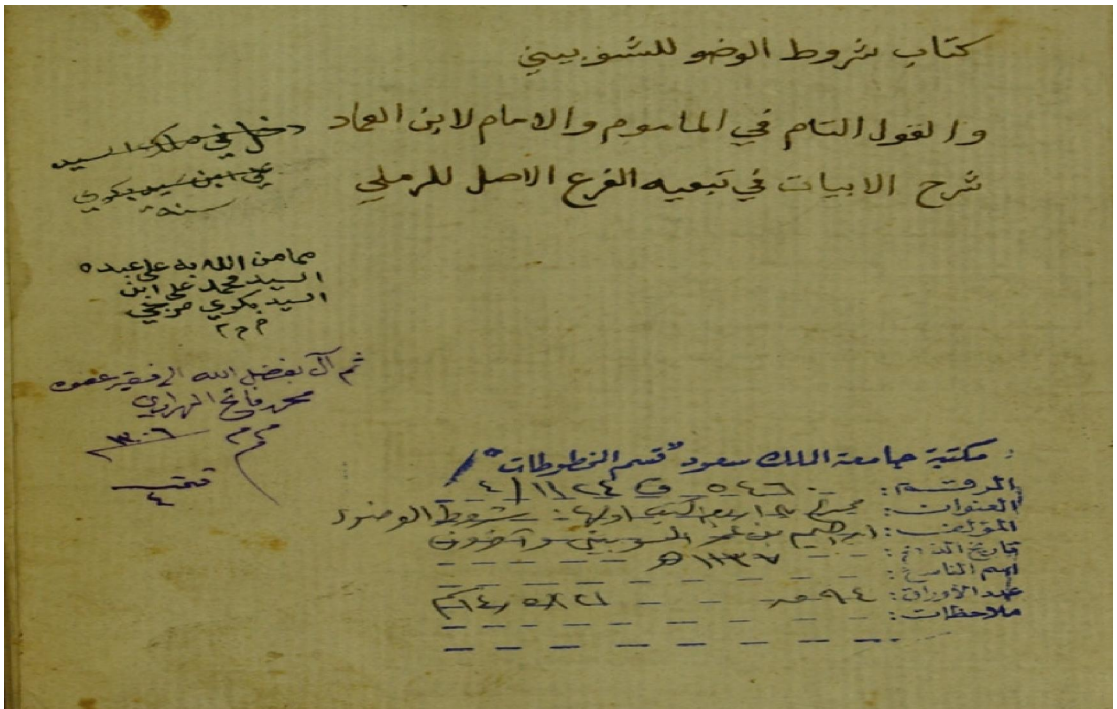 كتاب شروط الوضو للشوبيني
والقول التام في الماموم والامام لابن العماد
شرح الابيات في تبعيه الفرع الاصل للرملي
دخل في ملك السيد
علي ابن سيد بكري
سنة
مما من الله به على عبده
السيد محمد علي ابن
السيد بكري
ثم آل بفضل الله الى فقير عفوه
محمد فاتح الهراوي
١٣٠٦
مكتبة جامعة الملك سعود "قسم المخطوطات"
الرقم: ٥٤٦ ف ١١٢٤/٤
العنوان: مجموع به اربع كتب اولها: شروط الوضوء
المؤلف: ابراهيم بن عمر الشوبيني وآخرون
تاريخ النسخ: ١١٣٧ هـ
اسم الناسخ:
عدد الأوراق: ٩٤ ق
ملاحظات: